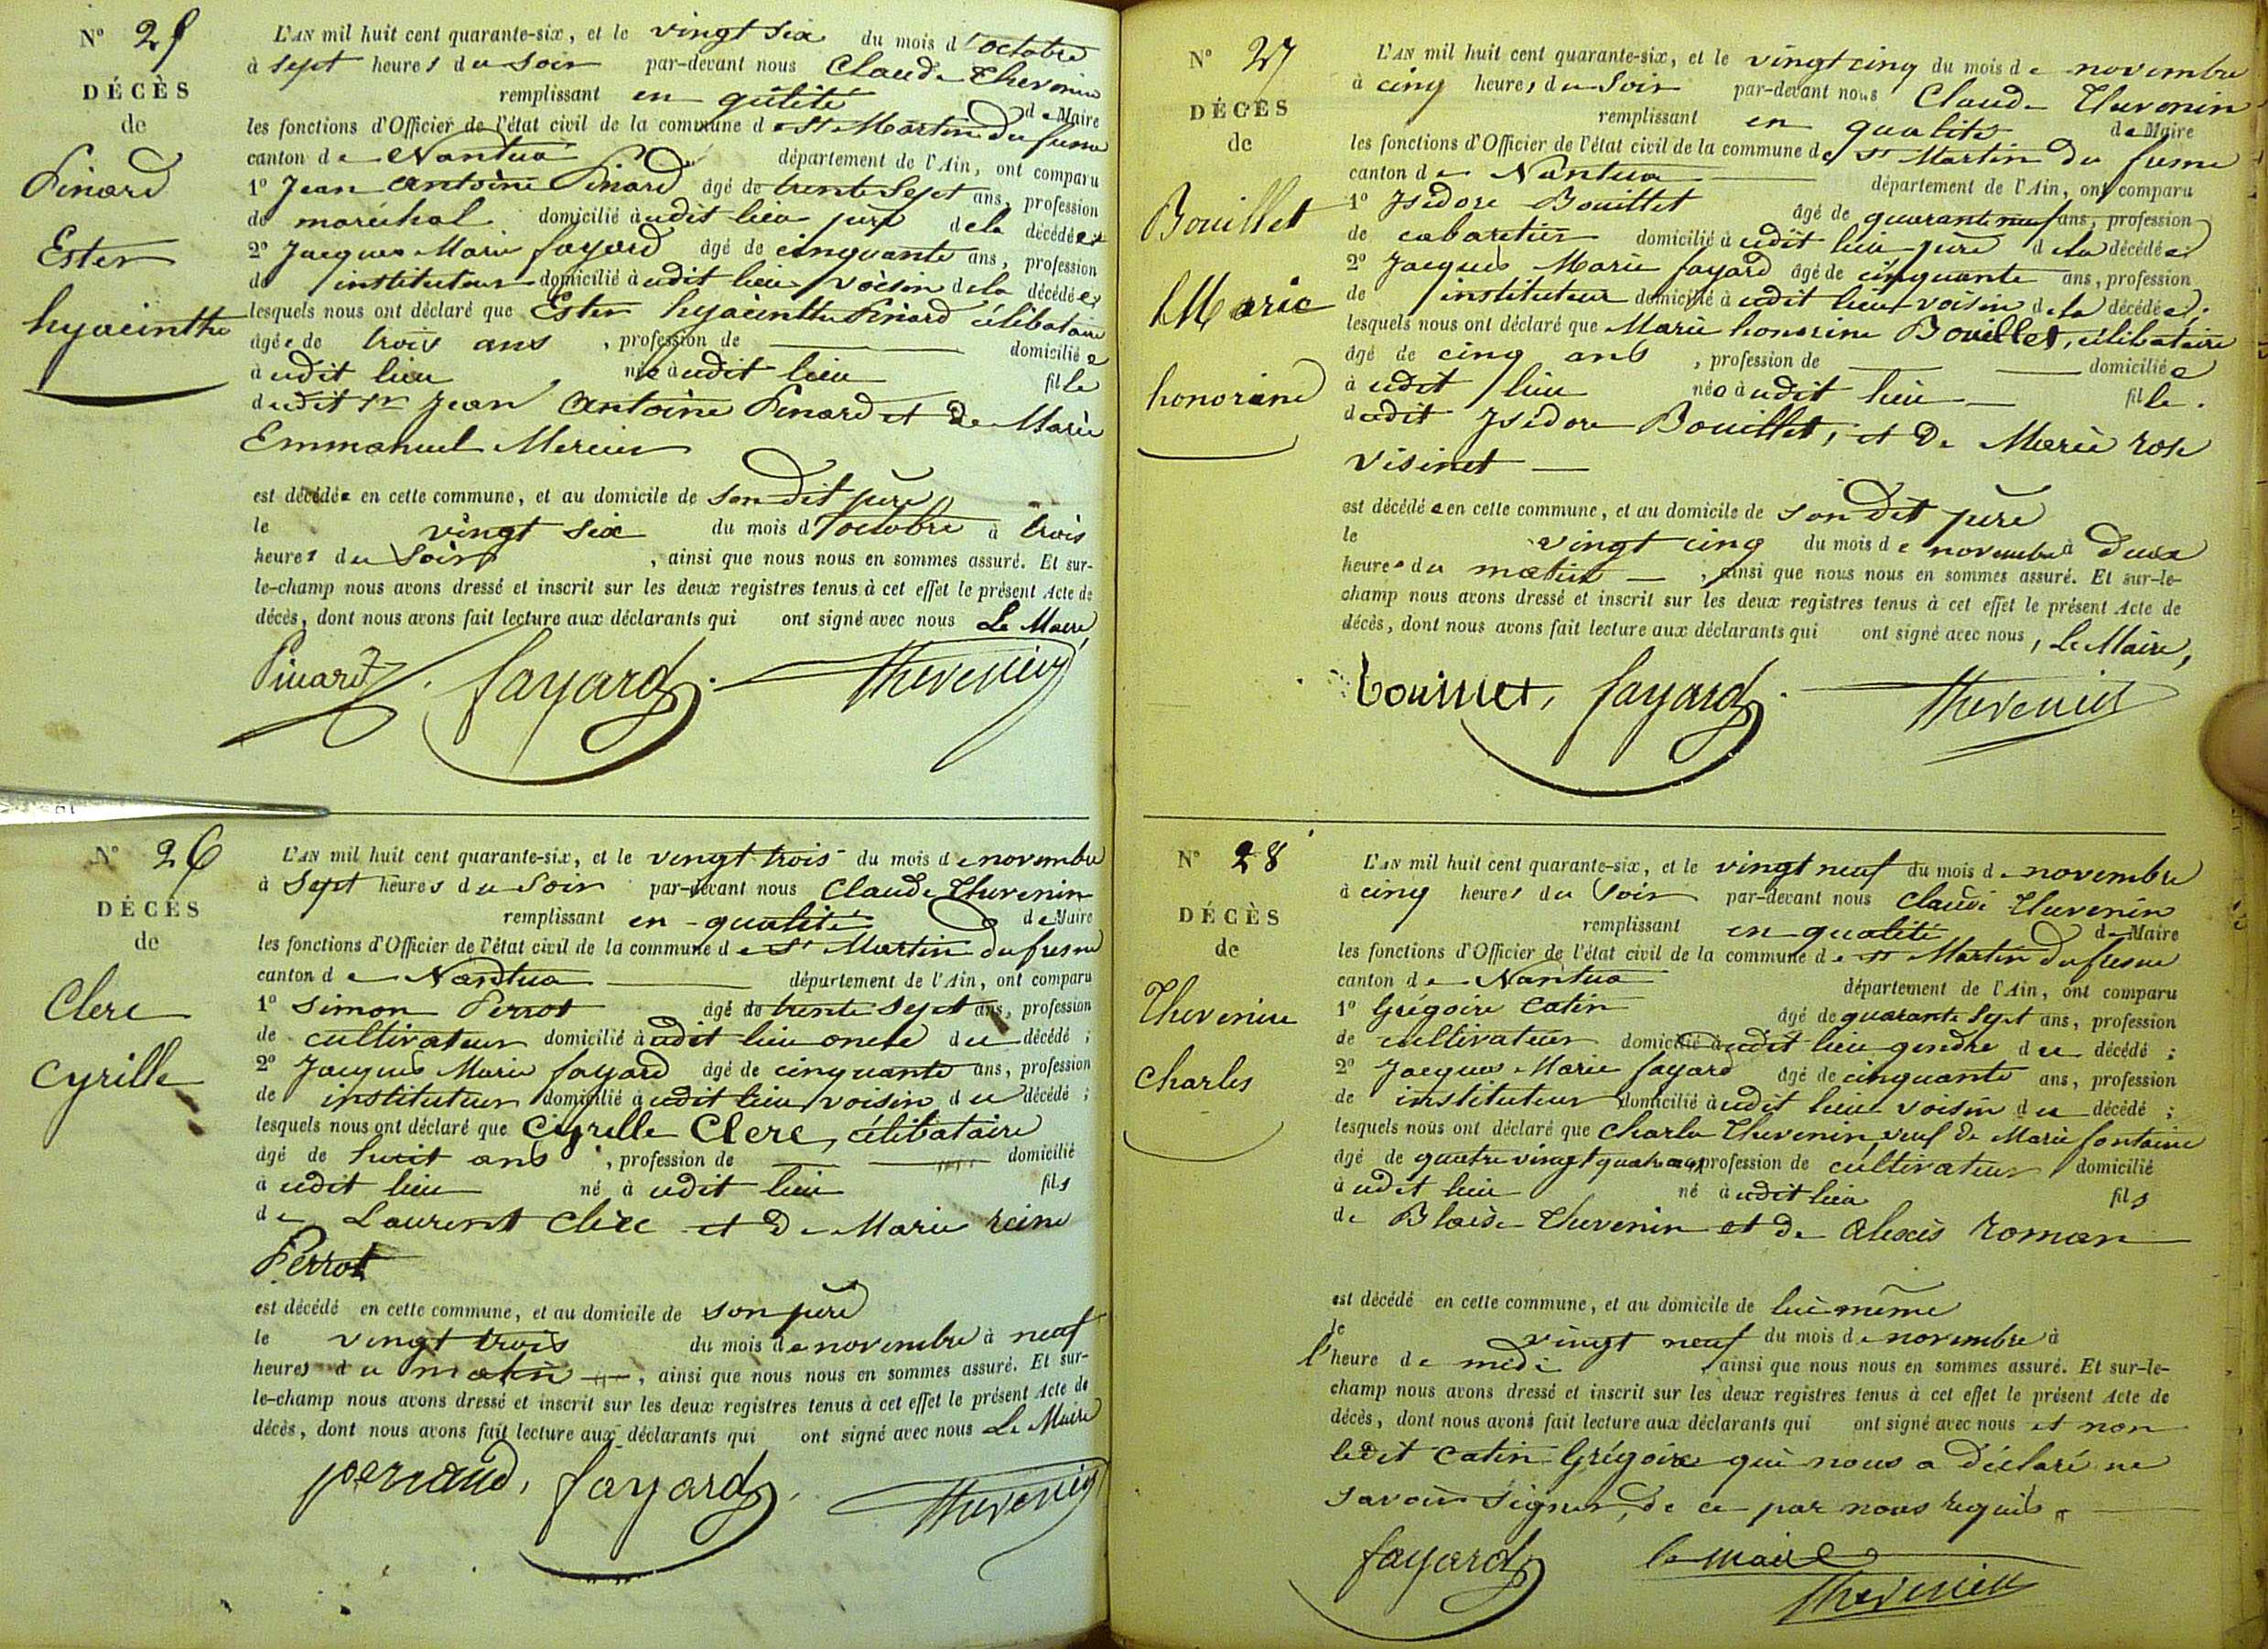 N° 25
DÉCÈS
de
Pinard
Ester
hyacinthe
L'AN mil huit cent quarante-six, et le vingt six du mois d'octobre
à sept heures du soir par-devant nous Claude Thevenin
remplissant en qualité de Maire
les fonctions d'Officier de l'état civil de la commune de St Martin du fresne
canton de Nantua département de l'Ain, ont comparu
1° Jean antoine Pinard âgé de trente Sept ans, profession
de maréchal domicilié audit lieu père de la décédée;
2° Jacques Marie fayard âgé de cinquante ans, profession
de instituteur domicilié audit lieu voisin de la décédée;
lesquels nous ont déclaré que Ester hyacinthe Pinard célibataire
âgée de trois ans, profession de domiciliée
audit lieu née audit lieu fille
dudit sr Jean Antoine Pinard et de Marie
Emmanuel Mercier
est décédée en cette commune, et au domicile de son dit père
le vingt six du mois d'octobre à trois
heures du Soir, ainsi que nous nous en sommes assuré. Et sur-
le-champ nous avons dressé et inscrit sur les deux registres tenus à cet effet le présent Acte de
décès, dont nous avons fait lecture aux déclarants qui ont signé avec nous Le Maire,
Pinard fayard Thevenin
N° 26
DÉCÈS
de
Clerc
Cyrille
L'AN mil huit cent quarante-six, et le vingt trois du mois de novembre
à Sept heures du Soir par-devant nous Claude Thevenin
remplissant en qualité de Maire
les fonctions d'Officier de l'état civil de la commune de St Martin du fresne
canton de Nantua département de l'Ain, ont comparu
1° Simon Perrot âgé de trente Sept ans, profession
de cultivateur domicilié audit lieu oncle du décédé;
2° Jacques Marie fayard âgé de cinquante ans, profession
de instituteur domicilié audit lieu voisin du décédé;
lesquels nous ont déclaré que Cyrille Clerc, célibataire
âgé de huit ans, profession de domicilié
audit lieu né audit lieu fils
de Laurent Clerc et de Marie reine
Perrot
est décédé en cette commune, et au domicile de son père
le vingt trois du mois de novembre à neuf
heures du matin, ainsi que nous nous en sommes assuré. Et sur-
le-champ nous avons dressé et inscrit sur les deux registres tenus à cet effet le présent Acte de
décès, dont nous avons fait lecture aux déclarants qui ont signé avec nous Le Maire
fayard Thevenin
N° 27
DÉCÈS
de
Bouillet
Marie
honorine
L'AN mil huit cent quarante-six, et le vingt cinq du mois de novembre
à cinq heures du Soir par-devant nous Claude Thevenin
remplissant en qualité de Maire
les fonctions d'Officier de l'état civil de la commune de St Martin du fresne
canton de Nantua département de l'Ain, ont comparu
1° Isidore Bouillet âgé de quarante neuf ans, profession
de cabaretier domicilié audit lieu père de la décédée;
2° Jacques Marie fayard âgé de cinquante ans, profession
de instituteur domicilié audit lieu voisin de la décédée;
lesquels nous ont déclaré que Marie honorine Bouillet, célibataire
âgé de cinq ans, profession de domiciliée
audit lieu née audit lieu fille.
dudit Isidore Bouillet, et de Marie rose
visinet
est décédée en cette commune, et au domicile de son dit père
le vingt cinq du mois de novembre à deux
heures du matin, ainsi que nous nous en sommes assuré. Et sur-le-
champ nous avons dressé et inscrit sur les deux registres tenus à cet effet le présent Acte de
décès, dont nous avons fait lecture aux déclarants qui ont signé avec nous, Le Maire,
bouillet, fayard Thevenin
N° 28
DÉCÈS
de
Thevenin
Charles
L'AN mil huit cent quarante-six, et le vingt neuf du mois de novembre
à cinq heures du Soir par-devant nous Claude Thevenin
remplissant en qualité de Maire
les fonctions d'Officier de l'état civil de la commune de St Martin du fresne
canton de Nantua département de l'Ain, ont comparu
1° Grégoire Catin âgé de quarante Sept ans, profession
de cultivateur domicilié audit lieu gendre du décédé;
2° Jacques Marie fayard âgé de cinquante ans, profession
de instituteur domicilié audit lieu voisin du décédé;
lesquels nous ont déclaré que Charles Thevenin, veuf de Marie fontaine
âgé de quatre vingt quatre ans, profession de cultivateur domicilié
audit lieu né audit lieu fils
de Blaise Thevenin et de Alexis roman
est décédé en cette commune, et au domicile de lui même
le vingt neuf du mois de novembre à
l'heure de midi ainsi que nous nous en sommes assuré. Et sur-le-
champ nous avons dressé et inscrit sur les deux registres tenus à cet effet le présent Acte de
décès, dont nous avons fait lecture aux déclarants qui ont signé avec nous et non
ledit Catin Grégoire qui nous a déclaré ne
savoir signer, de ce par nous requis.
fayard le maire
Thevenin